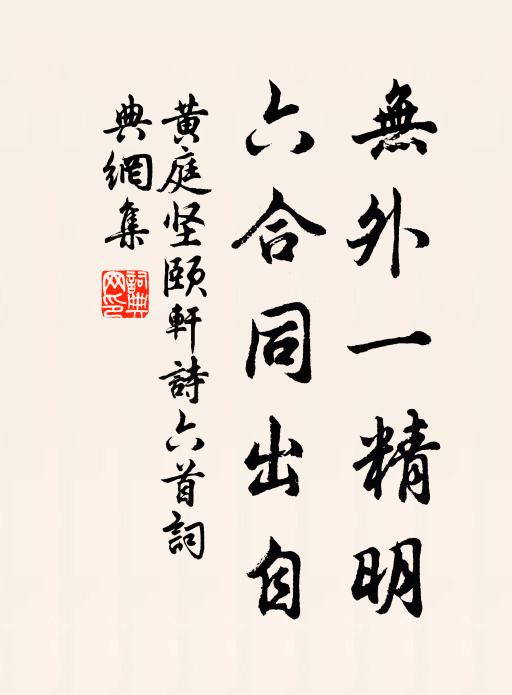 無外一精明
六合同出自
黄庭坚頤軒詩六首詞
典網集
詞典網印